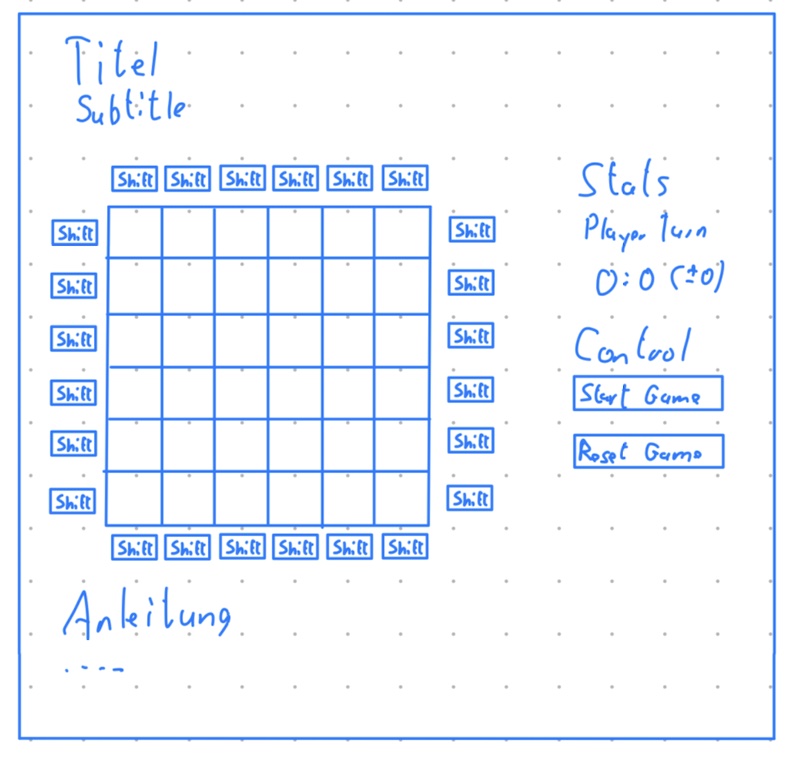 Titel
Subtitle
Shift Shift Shift Shift Shift Shift
Shift Shift
Shift Shift
Shift Shift
Shift Shift
Shift Shift
Shift Shift
Shift Shift Shift Shift Shift Shift
Stats
Player Turn
0:0 (±0)
Control
Start Game
Reset Game
Anleitung
....